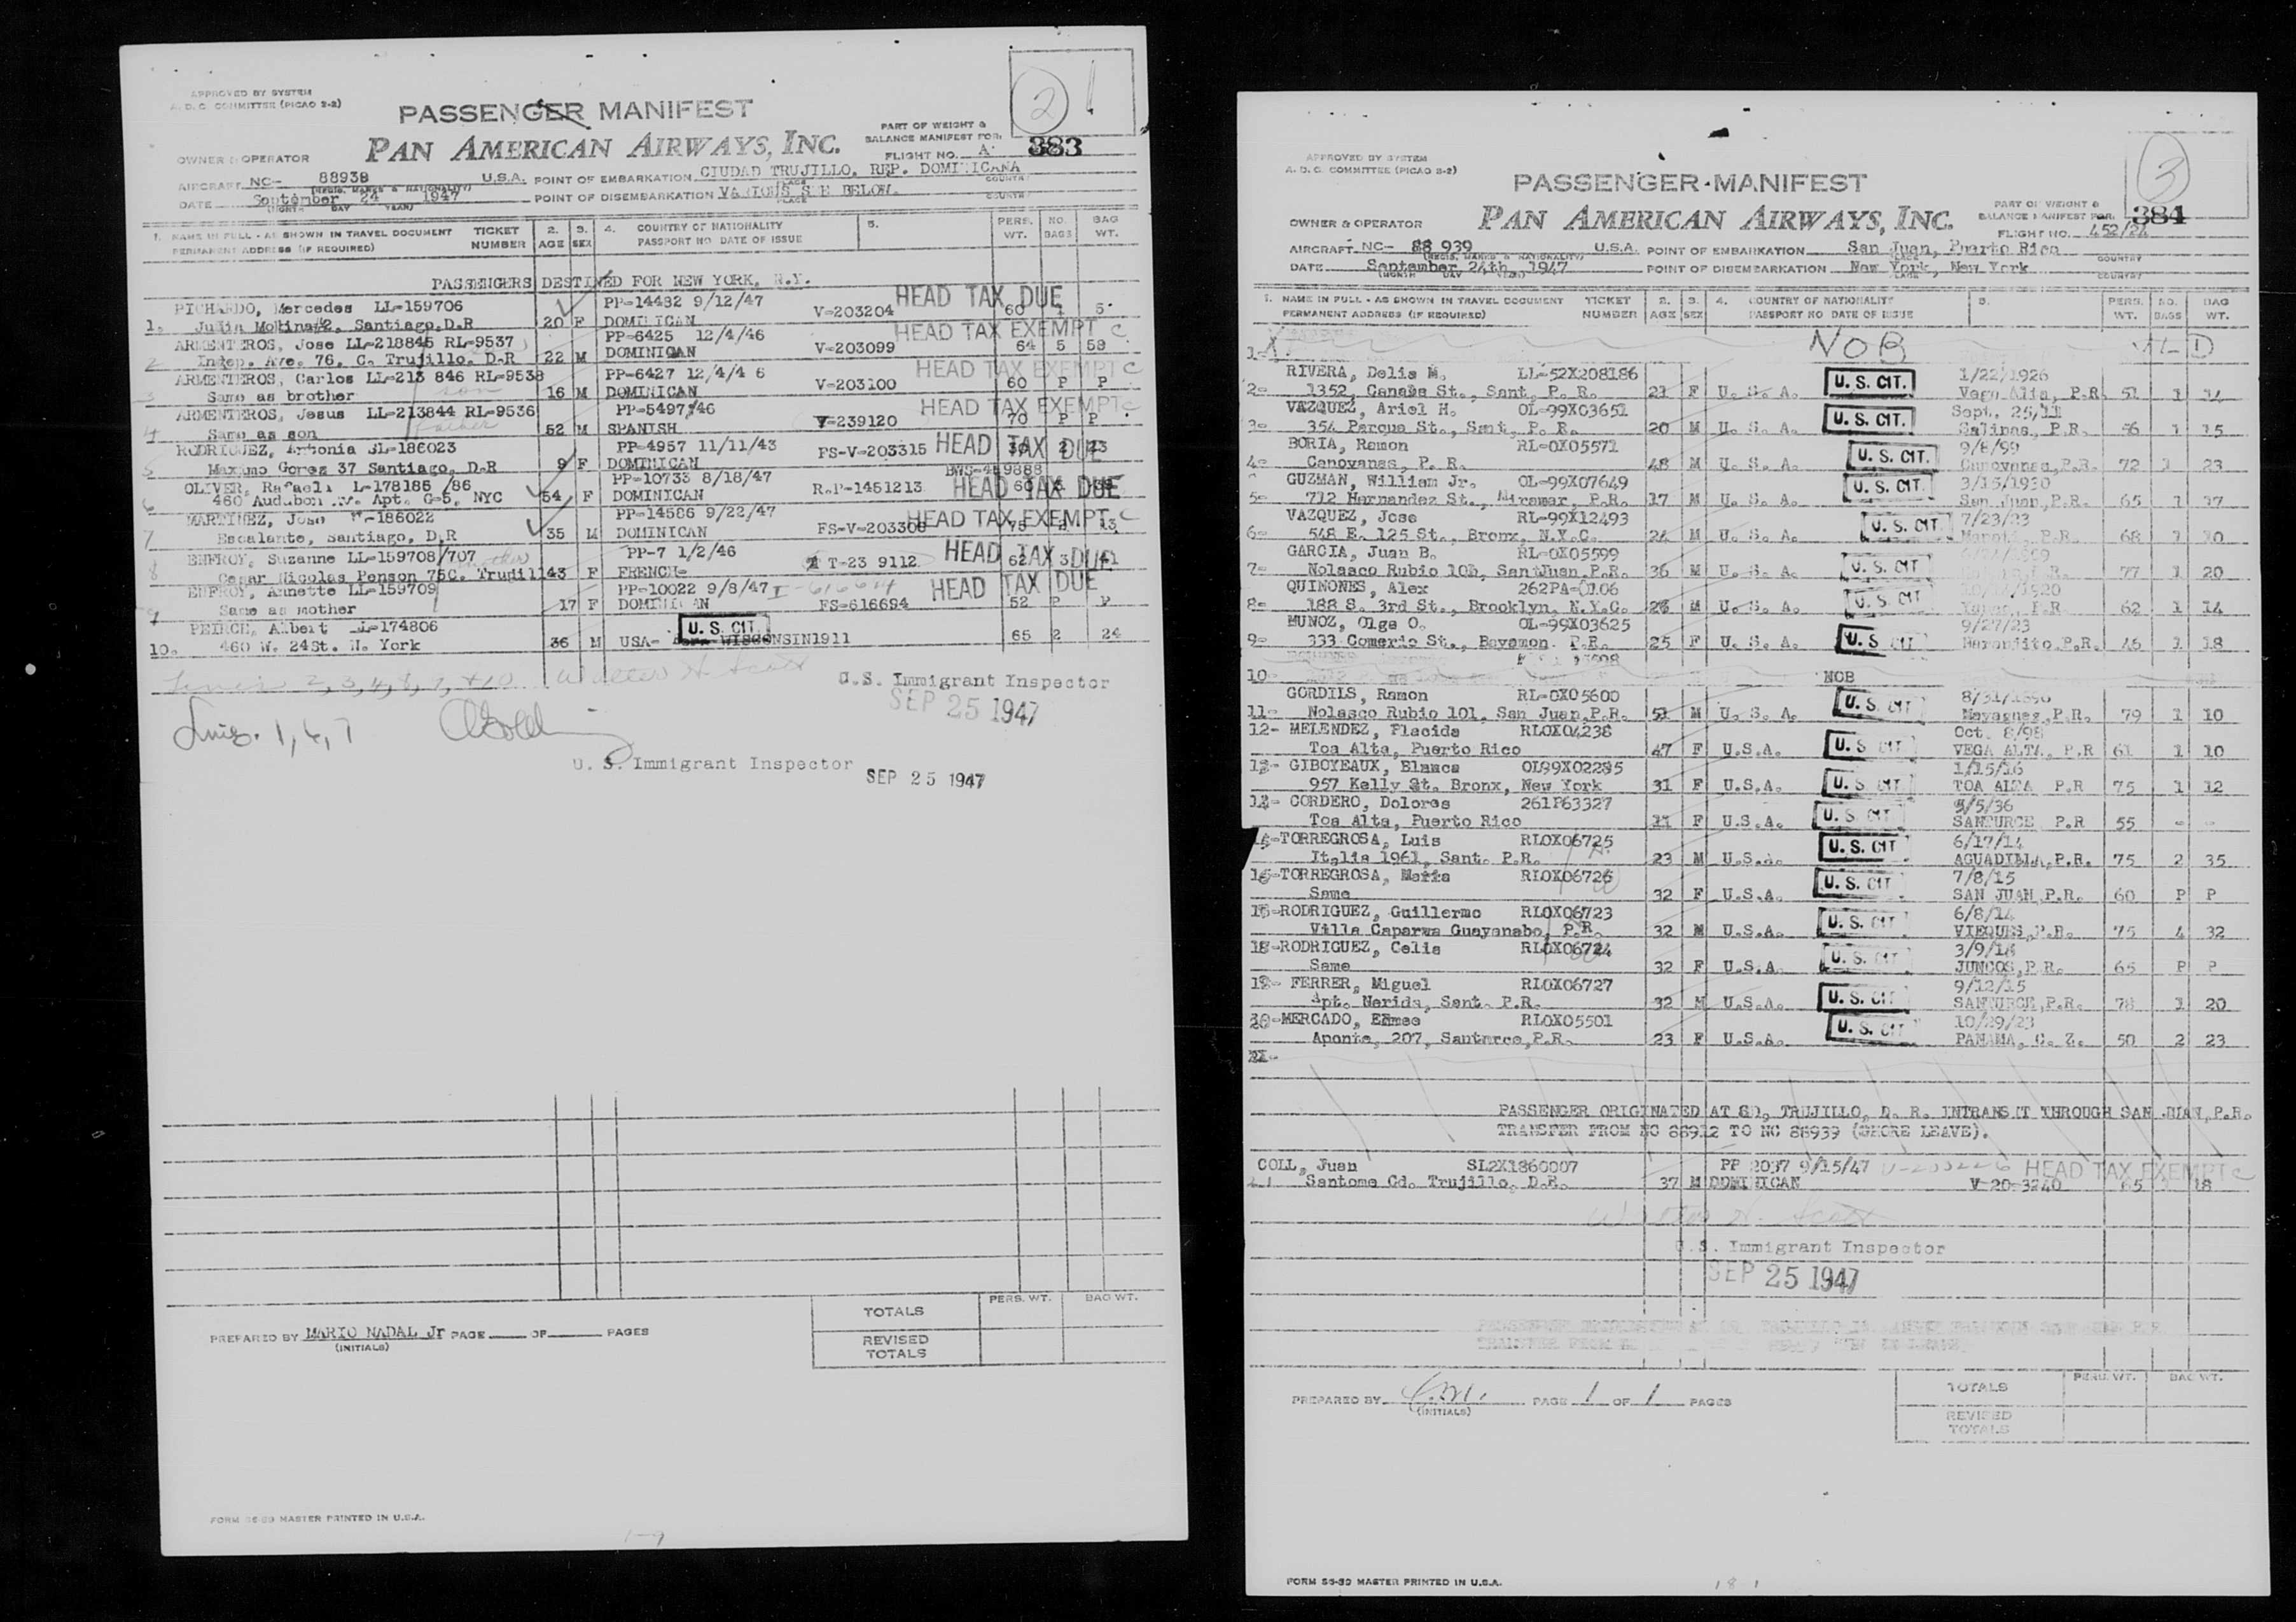 APPROVED BY SYSTEM
A. D. C. COMMITTEE (PICAO 2-2)
PASSENGER MANIFEST
PAN AMERICAN AIRWAYS, INC.
2
PART OF WEIGHT &
BALANCE MANIFEST FOR
FLIGHT NO. A
383
OWNER & OPERATOR
AIRCRAFT NC- 88938 U.S.A. POINT OF EMBARKATION CIUDAD TRUJILLO, REP. DOMINICANA
(REGIS. MARKS & NATIONALITY) PLACE COUNTRY
DATE September 24 1947 POINT OF DISEMBARKATION VARIOUS SEE BELOW.
(MONTH DAY YEAR) PLACE COUNTRY
1. NAME IN FULL - AS SHOWN IN TRAVEL DOCUMENT TICKET 2. 3. 4. COUNTRY OF NATIONALITY 5. PERS. NO. BAG
PERMANENT ADDRESS (IF REQUIRED) NUMBER AGE SEX PASSPORT NO DATE OF ISSUE WT. BAGS WT.
PASSENGERS DESTINED FOR NEW YORK, N.Y.
PICHARDO, Mercedes LL-159706 PP-14482 9/12/47 V-203204 HEAD TAX DUE
1. Julia Molina#2, Santiago, D.R 20 F DOMINICAN 60 1 5
ARMENTEROS, Jose LL-218845 RL-9537 PP-6425 12/4/46 HEAD TAX EXEMPT C
2 Indep. Ave. 76, C. Trujillo, D.R 22 M DOMINICAN V-203099 64 5 58
ARMENTEROS, Carlos LL-213 846 RL-9538 PP-6427 12/4/4 6 HEAD TAX EXEMPT C
3 Same as brother son 16 M DOMINICAN V-203100 60 P P
ARMENTEROS, Jesus LL-213844 RL-9536 PP-5497/46 HEAD TAX EXEMPT C
4 Same as son father 52 M SPANISH V-239120 70 P P
RODRIGUEZ, Antonia SL-186023 PP-4957 11/11/43 FS-V-203315 HEAD TAX DUE
5 Maximo Gomez 37 Santiago, D.R 9 F DOMINICAN
OLIVER, Rafaela L-178186 /86 PP-10733 8/18/47 R.P-1451213 HEAD TAX DUE
6 460 Audubon Av. Apt. G-5, NYC 54 F DOMINICAN 60
MARTINEZ, Jose -186022 PP-14586 9/22/47 HEAD TAX EXEMPT C
7 Escalante, Santiago, D.R 35 M DOMINICAN 75 2 13
ENFROY, Suzanne LL-159708/707 mother PP-7 1/2/46 T-23 9112 HEAD TAX DUE
8 Cesar Nicolas Penson 75C. Trujill 43 F FRENCH- 62 3 41
ENFROY, Annette LL-159709 PP-10022 9/8/47 I-616694 HEAD TAX DUE
9 Same as mother 17 F DOMINICAN FS-616694 52 P P
PEIRCE, Albert LL-174806 U. S. CIT.
10. 460 W. 24St. N. York 36 M USA- WISCONSIN1911 65 2 24
Walter H. Scott
U.S. Immigrant Inspector
SEP 25 1947
U. S. Immigrant Inspector SEP 25 1947
TOTALS PERS. WT. BAG WT.
REVISED
TOTALS
PREPARED BY MARIO NADAL Jr PAGE OF PAGES
(INITIALS)
FORM 55-89 MASTER PRINTED IN U.S.A.
1-9
APPROVED BY SYSTEM
A. D. C. COMMITTEE (PICAO 2-2)
PASSENGER MANIFEST
3
PAN AMERICAN AIRWAYS, INC.
PART OF WEIGHT &
BALANCE MANIFEST FOR
384
FLIGHT NO. 452/24
OWNER & OPERATOR
AIRCRAFT NC- 88 939 U.S.A. POINT OF EMBARKATION San Juan, Puerto Rico
(REGIS. MARKS & NATIONALITY) PLACE COUNTRY
DATE September 24th, 1947 POINT OF DISEMBARKATION New York, New York
(MONTH DAY YEAR) COUNTRY
1. NAME IN FULL - AS SHOWN IN TRAVEL DOCUMENT TICKET 2. 3. 4. COUNTRY OF NATIONALITY 5. PERS. NO. BAG
PERMANENT ADDRESS (IF REQUIRED) NUMBER AGE SEX PASSPORT NO DATE OF ISSUE WT. BAGS WT.
1- NOB
RIVERA, Delia M. LL-52X208186 U. S. CIT. 1/22/1926
2- 1352, Canals St., Sant, P. R. 21 F U. S. A. Vega Alta, P.R. 51 1 14
VAZQUEZ, Ariel H. OL-99X03651 U. S. CIT. Sept. 25/
3- 354 Parque St., Sant, P. R. 20 M U. S. A. Salinas, P.R. 56 1 15
BORIA, Ramon RL-0X05571 U. S. CIT. 9/8/99
4- Canovanas, P. R. 48 M U. S. A. Canovanas, P.R. 72 1 23
GUZMAN, William Jr. OL-99X07649 U. S. CIT. 3/15/1930
5- 712 Hernandez St., Miramar, P.R. 17 M U. S. A. San Juan, P.R. 65 1 17
VAZQUEZ, Jose RL-99X12493 U. S. CIT. 7/23/23
6- 548 E. 125 St., Bronx, N.Y.C. 24 M U. S. A. P.R. 68 1 10
GARCIA, Juan B. RL-0X05599 U. S. CIT
7- Nolasco Rubio 101, SantJuan, P.R. 36 M U. S. A. 77 1 20
QUINONES, Alex 262PA-0106 U. S. CIT
8- 188 S. 3rd St., Brooklyn, N.Y.C. 26 M U. S. A. P.R 62 1 14
MUNOZ, Olga O. OL-99X03625 U. S CIT 9/27/23
9- 333 Comerio St., Bayamon, P.R. 25 F U. S. A. Naranjito, P.R. 46 1 18
10- NOB
GORDILS, Ramon RL-0X05600 U. S. CIT 8/31/1896
11- Nolasco Rubio 101, San Juan, P.R. 51 M U. S. A. Mayaguez, P.R. 79 1 10
12- MELENDEZ, Placida RLOX04238 U. S CIT Oct. 8/98
Toa Alta, Puerto Rico 47 F U.S.A. VEGA ALTA, P.R 61 1 10
GIBOYEAUX, Blanca OL99X02285 U. S CIT 1/15/16
957 Kelly St. Bronx, New York 31 F U.S.A. TOA ALTA P.R 75 1 12
CORDERO, Dolores 261P63327 U. S CIT 5/5/36
Toa Alta, Puerto Rico 11 F U.S.A. SANTURCE P.R 55 - -
TORREGROSA, Luis RLOX06725 U. S. CIT 6/17/14
Italia 1961, Sant. P.R. 23 M U.S.A. AGUADILLA, P.R. 75 2 35
TORREGROSA, Maria RLOX06726 U. S. CIT 7/8/15
Same 32 F U.S.A. SAN JUAN, P.R. 60 P P
RODRIGUEZ, Guillermo RLOX06723 U. S. CIT 6/8/14
Villa Caparra Guayanabo, P.R. 32 M U.S.A. VIEQUES, P.R. 75 4 32
18-RODRIGUEZ, Celia RLOX06724 U. S. CIT 3/9/14
Same 32 F U.S.A. JUNCOS, P.R. 65 P P
FERRER, Miguel RLOX06727 U. S. CIT 9/12/15
Apt. Nerida, Sant. P.R. 32 M U.S.A. SANTURCE, P.R. 78 1 20
20-MERCADO, Esmee RLOX05501 U. S. CIT 10/29/23
Aponte, 207, Santurce, P.R. 23 F U.S.A. PANAMA, C. Z. 50 2 23
21-
PASSENGER ORIGINATED AT CD, TRUJILLO, D. R. INTRANSIT THROUGH SAN JUAN, P.R.
TRANSFER FROM NC 88912 TO NC 88939 (SHORE LEAVE).
COLL, Juan SL2X1860007 PP 2037 9/15/47 V-203226 HEAD TAX EXEMPT C
Santome Cd. Trujillo, D.R. 37 M DOMINICAN V-20-3240 65 18
Walter H. Scott
U.S. Immigrant Inspector
SEP 25 1947
PREPARED BY PAGE 1 OF 1 PAGES
(INITIALS)
TOTALS PERS. WT. BAG WT.
REVISED
TOTALS
FORM 55-89 MASTER PRINTED IN U.S.A.